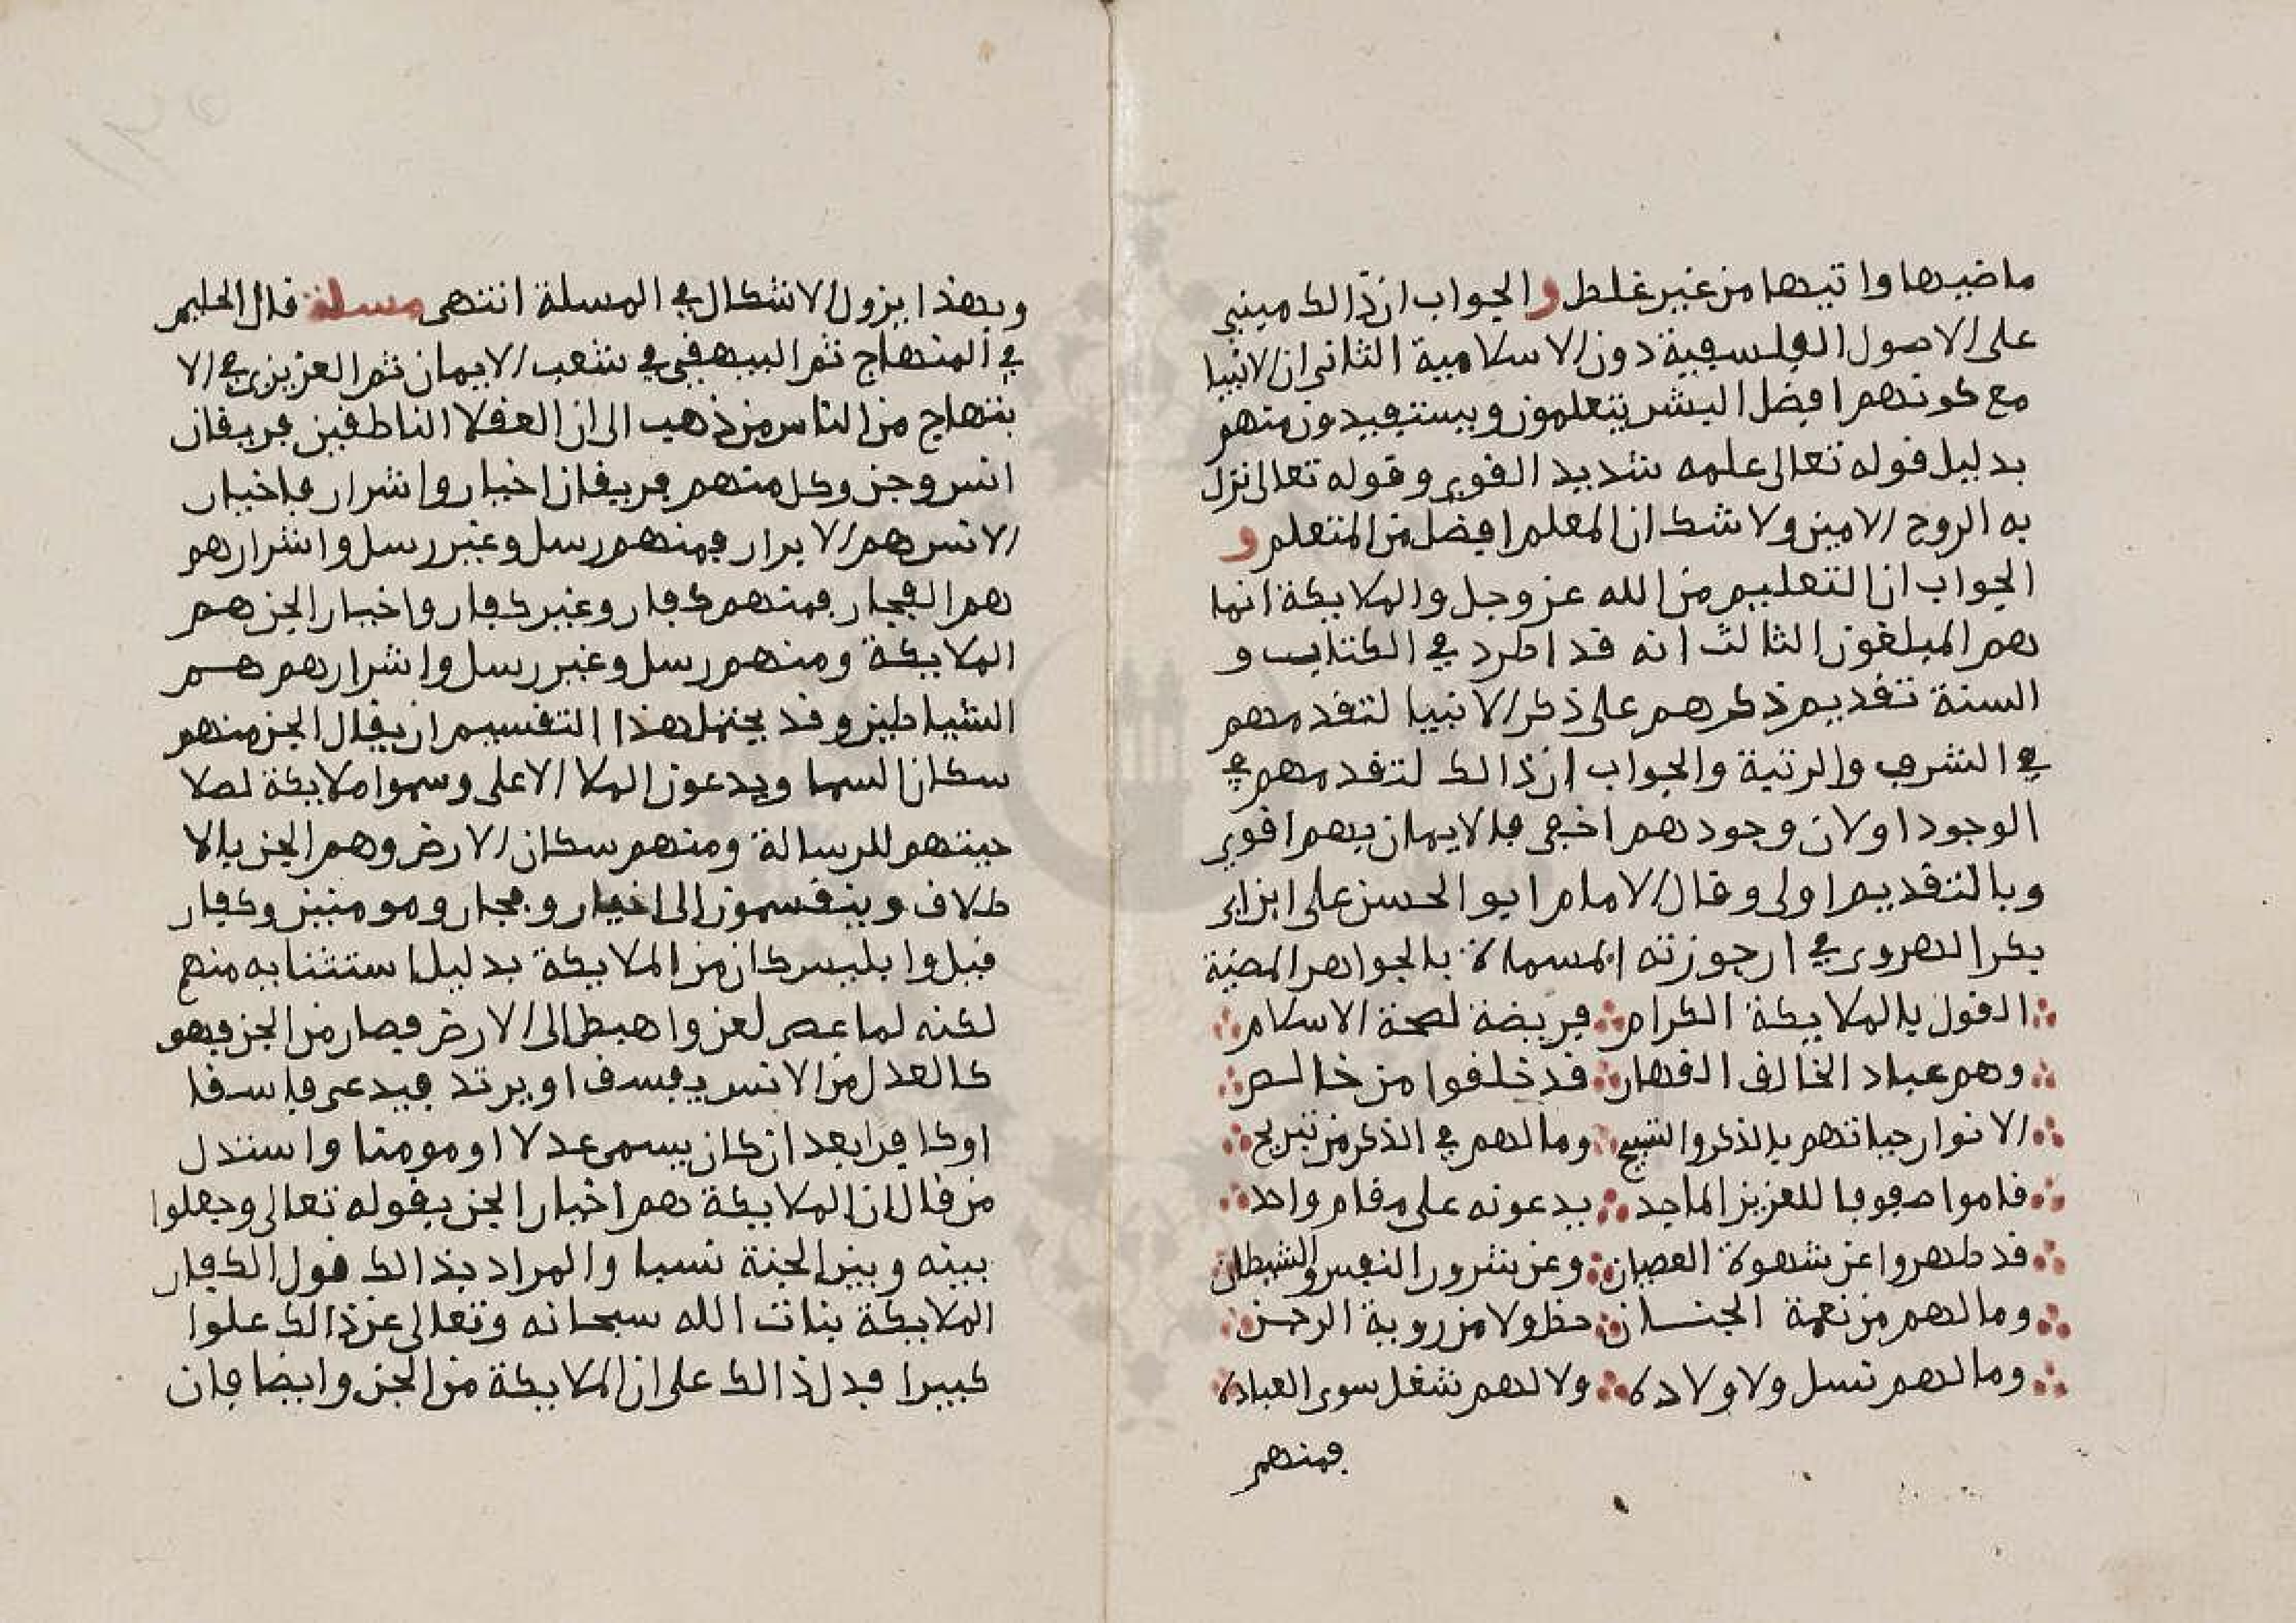 ماضيها واتيها من غير غلط والجواب ان ذالك مبني
على الاصول الفلسفية دون الاسلامية الثاني ان الانبيا
مع كونهم افضل البشر يتعلمون ويستفيدون منهم
بدليل قوله تعالى علمه شديد القوى وقوله تعالى نزل
به الروح الامين ولا شك ان المعلم افضل من المتعلم و
الجواب ان التعليم من الله عز وجل والملايكة انما
هم المبلغون الثالث انه قد اطرد في الكتاب و
السنة تقديم ذكرهم على ذكر الانبيا لتقدمهم
في الشرف والرتبة والجواب ان ذالك لتقدمهم في
الوجود او لان وجودهم اخفى فالايمان بهم اقوى
وبالتقديم اولى وقال الامام ابو الحسن على ابن ابى
بكر الهروى في ارجوزته المسماة بالجواهر المضية
القول بالملايكة الكرام فريضة لصحة الاسلام
وهم عباد الخالق القهار قد خلقوا من خالص
الانوار حياتهم بالذكر والتسبيح وما لهم في الذكر من تبريح
قاموا صفوفا للعزيز الماجد يدعونه على مقام واحد
قد طهروا عن شهوة العصيان وعن شرور النفس والشيطان
وما لهم من نعمة الجنان حظ ولا من روية الرحمن
وما لهم نسل ولا ولادة ولا لهم شغل سوى العبادة
فمنهم
وبهذا يزول الاشكال في المسلة انتهى مسلة قال الحليم
في المنهاج ثم البيهقي في شعب الايمان ثم العزيزى في الا
بتهاج من الناس من ذهب الى ان العقلا الناطقين فريقان
انس وجن وكل منهم فريقان اخيار واشرار فاخيار
الانس هم الابرار فمنهم رسل وغير رسل واشرارهم
هم الفجار فمنهم كفار وغير كفار واخيار الجن هم
الملايكة ومنهم رسل وغير رسل واشرارهم هم
الشياطين وقد يحتمل هذا التقسيم ان يقال الجن منهم
سكان السما ويدعون الملا الاعلى وسموا ملايكة لصلا
حيتهم للرسالة ومنهم سكان الارض وهم الجن بالا
طلاق وينقسمون الى اخيار وفجار ومومنين وكفار
قبل وابليس كان من الملايكة بدليل استثنايه منهم
لكنه لما عصى لعن واهبط الى الارض فصار من الجن فهو
كالعدل من الانس يفسق او يرتد فيدعى فاسقا
او كافرا بعد ان كان يسمى عدلا او مومنا واستدل
من قال ان الملايكة هم اخيار الجن بقوله تعالى وجعلوا
بينه وبين الجنة نسبا والمراد بذالك قول الكفار
الملايكة بنات الله سبحانه وتعالى عن ذالك علوا
كبيرا فدل ذالك على ان الملايكة من الجن وايضا فان